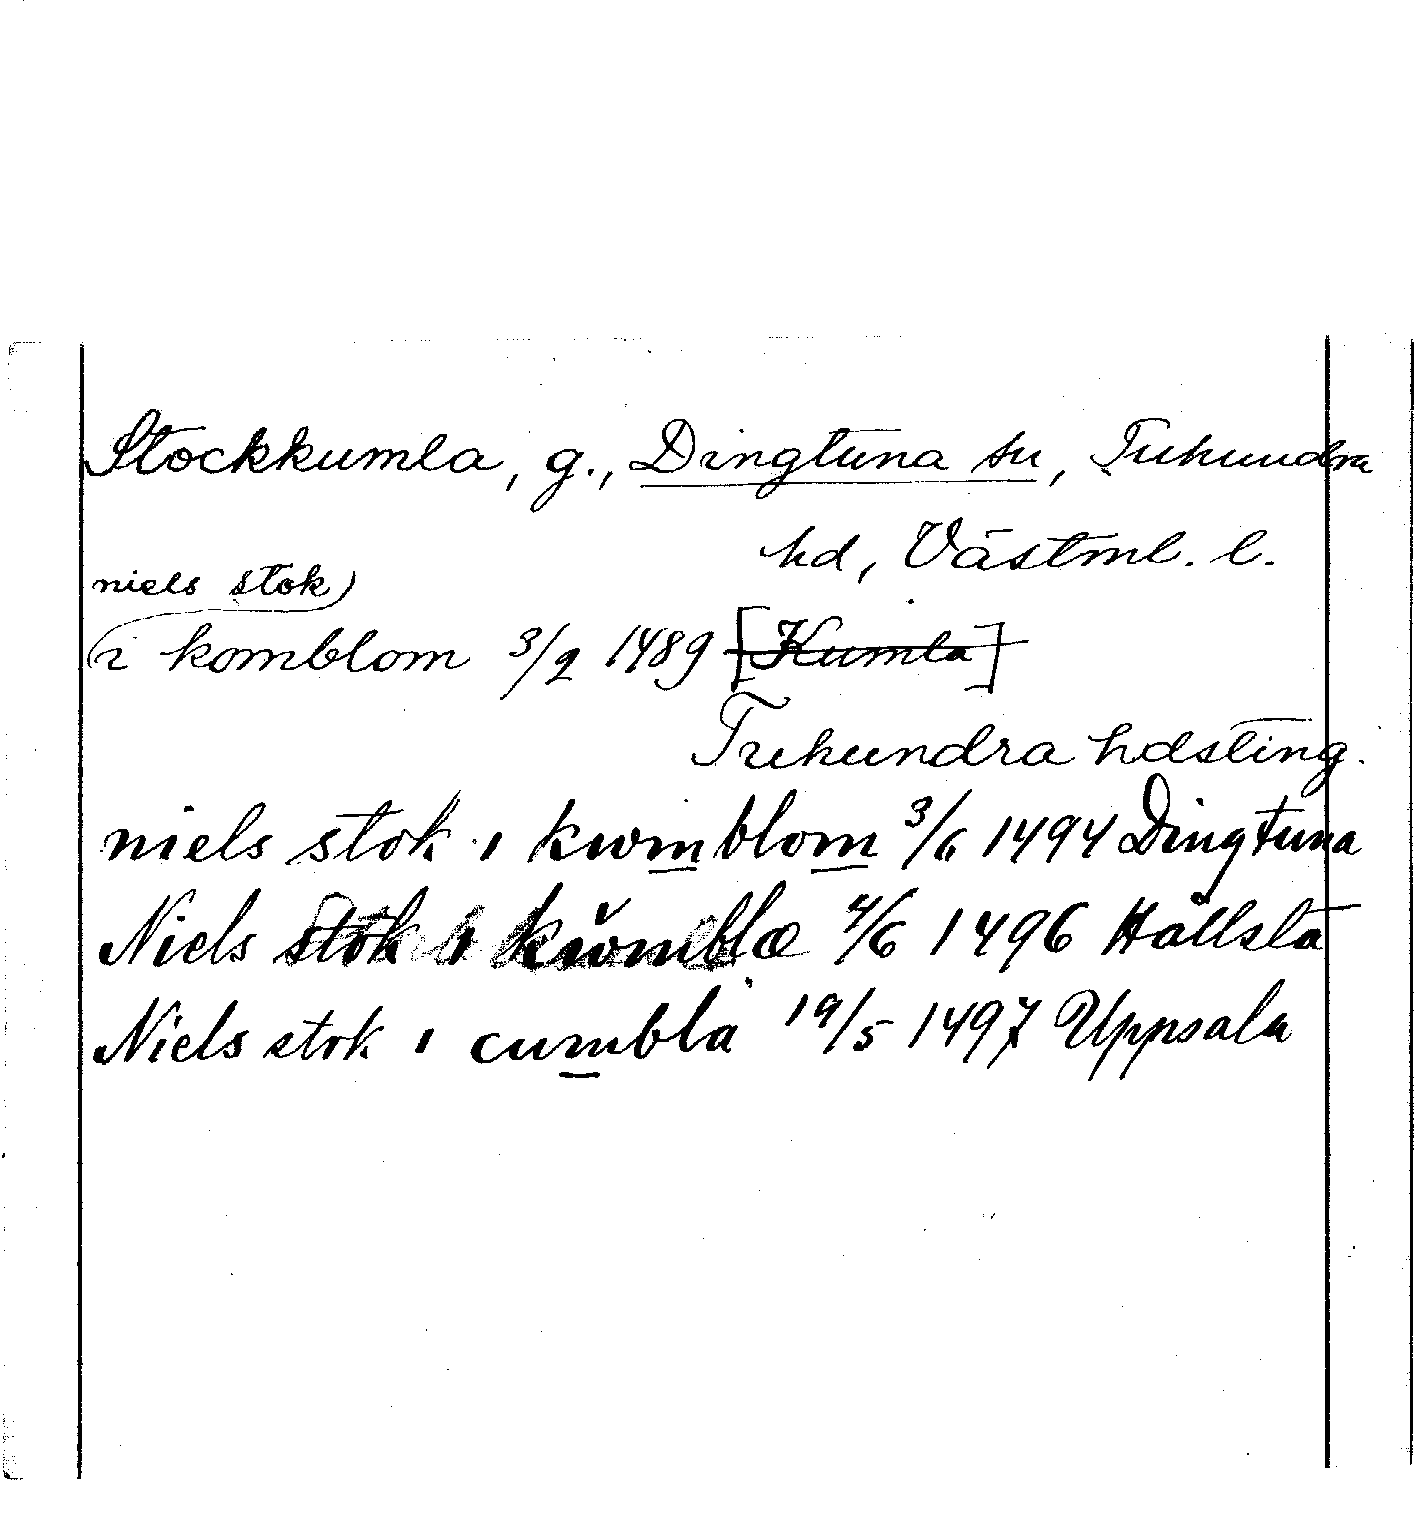 Stockkumla, g., Dingtuna sn, Tuhundra
hd, Västml. l.
niels stok)
(i komblom 3/2 1489 [Kumla]
Tuhundra hdsting.
niels stok ı kwomblom 3/6 1494 Dingtuna
Niels stok i kwomblæ 4/6 1496 Hállsta
Niels stok ı cumbla 19/5 1497 Uppsala